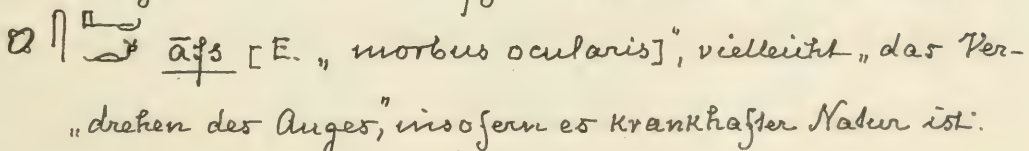 āfs [E. „morbus ocularis]", vielleicht „das Ver-
„drehen des Auges," insofern es krankhafter Natur ist.